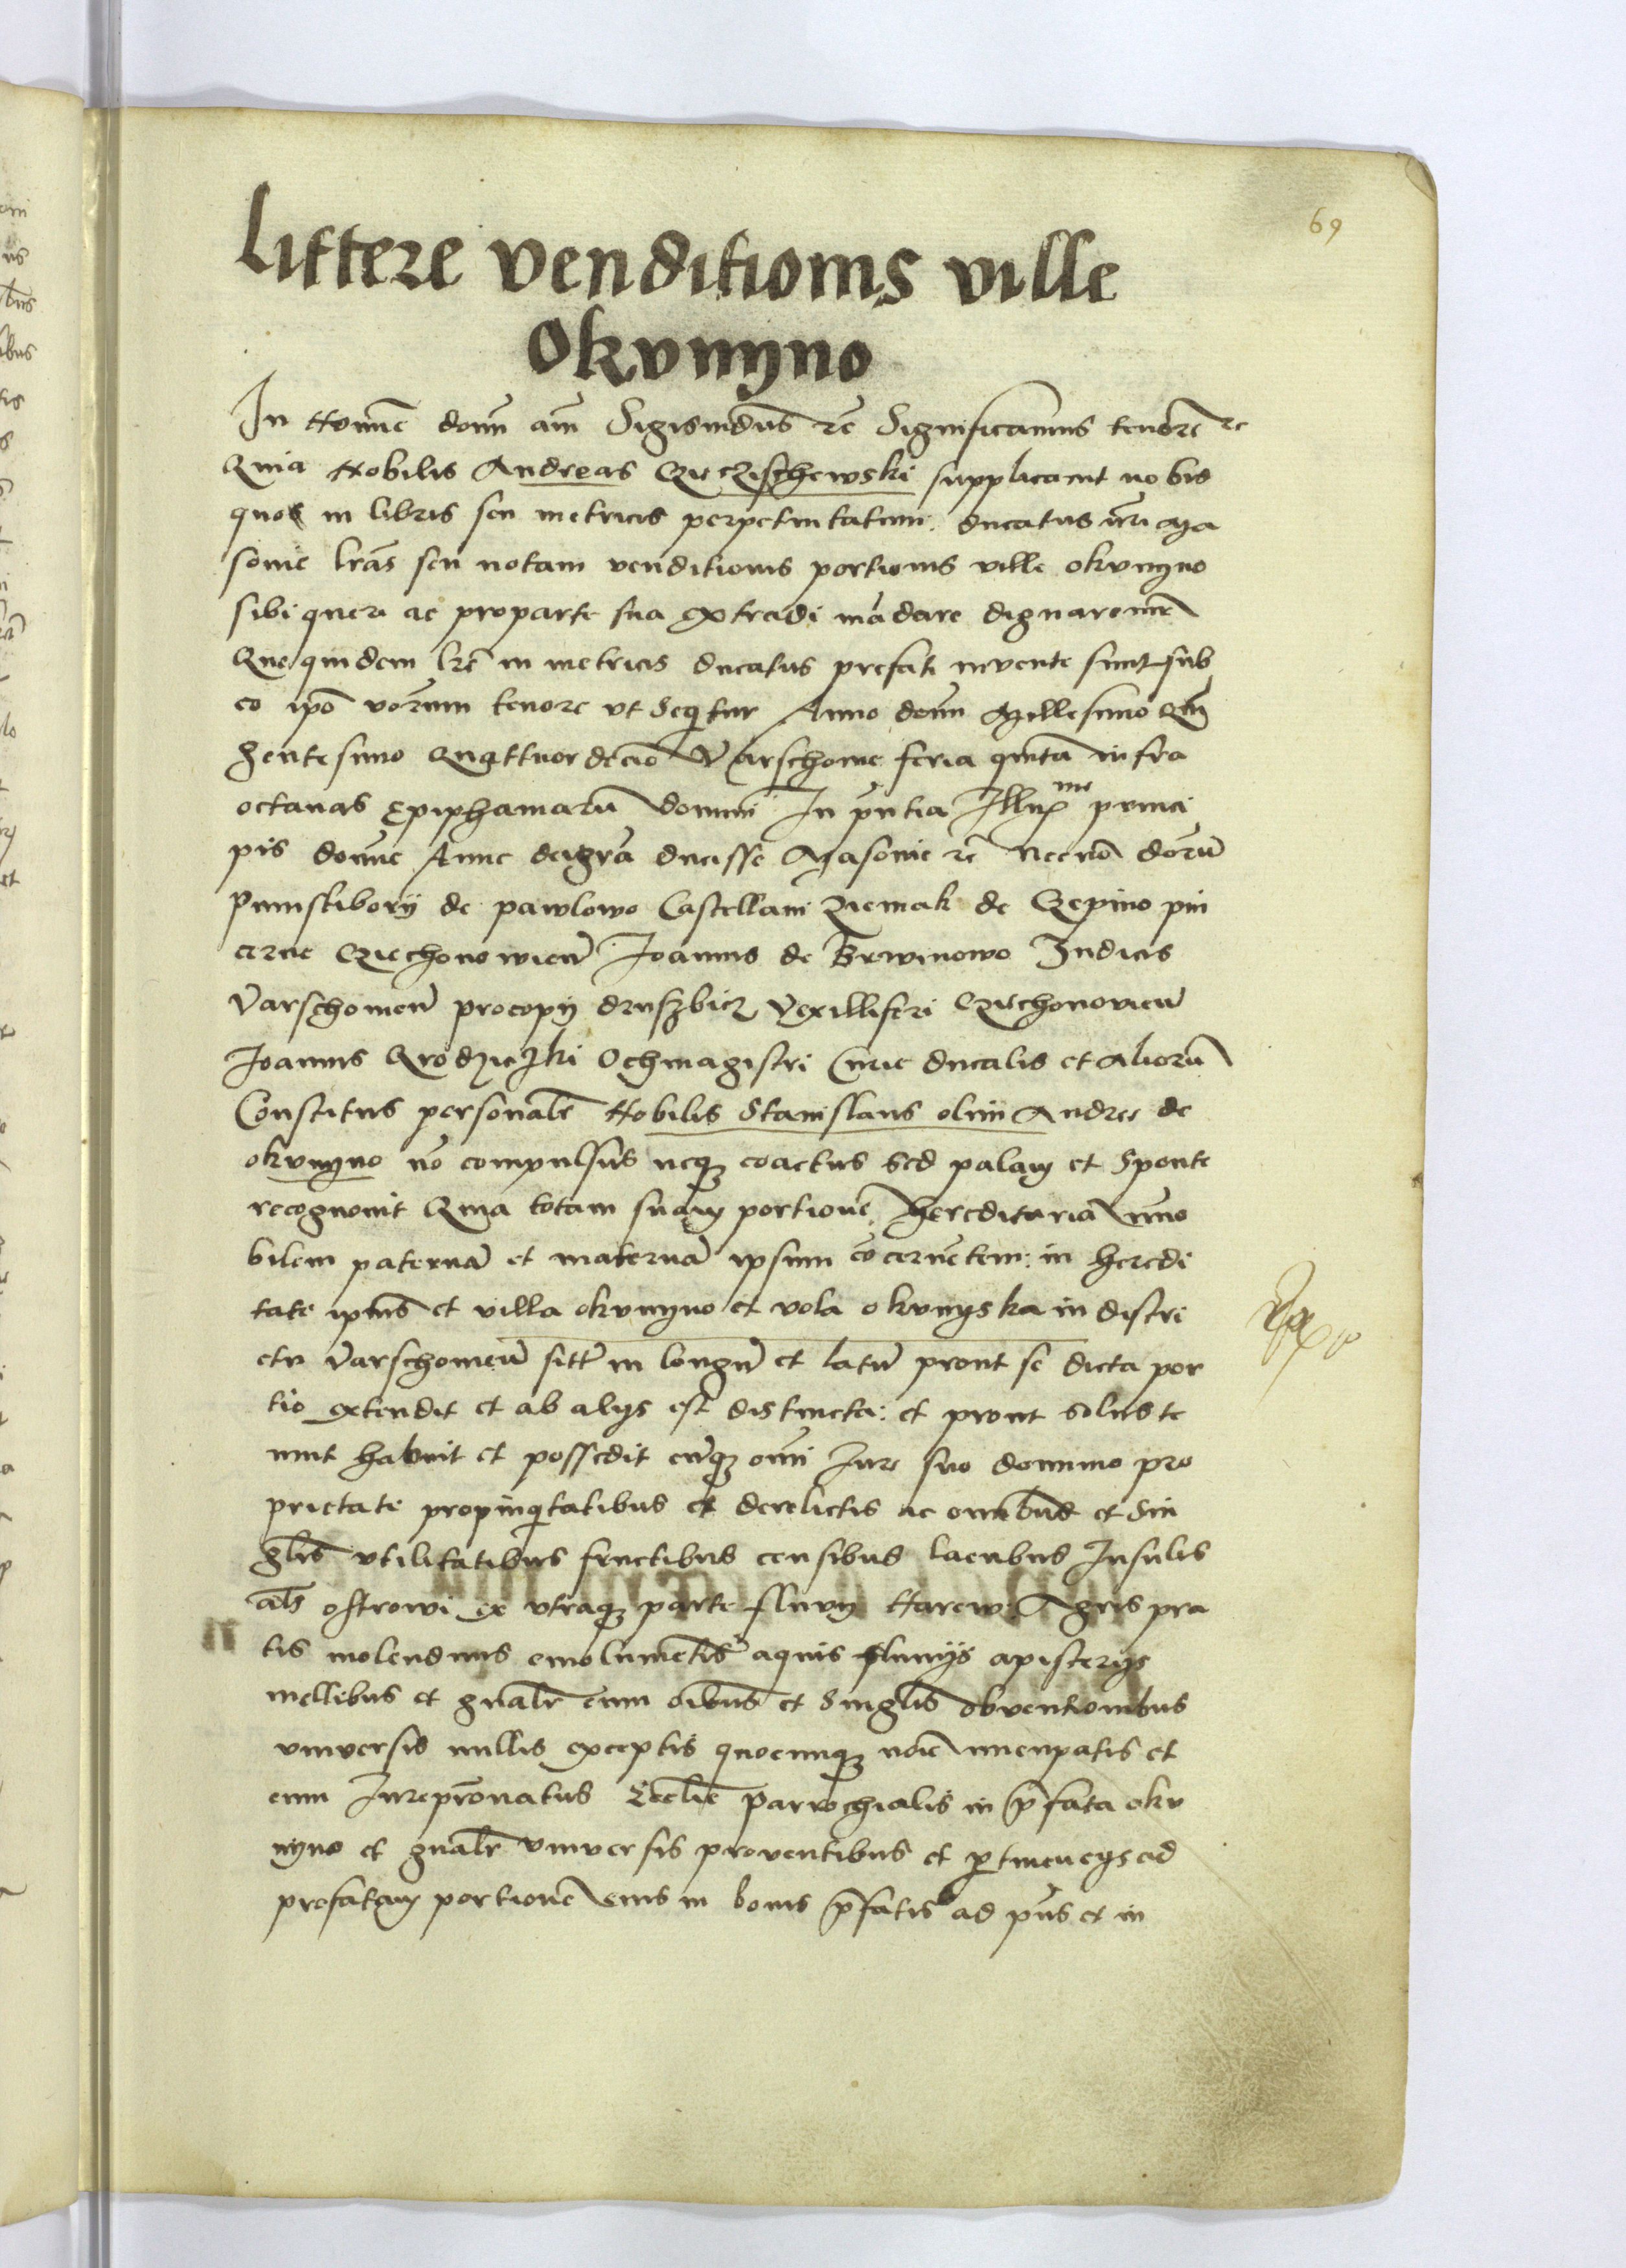 69
Littere venditionis ville
Okvnyno
In Nomie domi am Sigismdus re Significamus tenore re
Quia Nobilis Andreas Cieczischewski supplicavit nobis
quos in libris seu metricis perpetuitatum ducatus nri Ma
sovie lras seu notam venditionis portionis ville okvnyno
sibi queri ac pro parte sua extradi madare dignaremur
Que quidem lre in metricis ducatus prefati invente sunt sub
eo ipo verum tenore ut Sequitur Anno domi Millesimo Quin
gentesimo Quattuordecio Varschovie feria quinta infra
octavas Epiphaniaru domini In pntia Illux me princi
pis domne Anne dei gra ducisse Masovie re Necno doru
Prinsclibory de pawlowo Castellani Ziemak de Czepino pin
cerne Cziechonowien Joannis de Brwinowo Judicis
Varschovien procopy druszbicz Vexilliferi Cziechonovien
Joannis Grodzieczki Ochmagistri Curie ducalis et aliorum
Constitus personalr Nobilis Stanislaus olim Andree de
okvnyno no compulsus neq coactus Sed palam et Sponte
recognovit Quia totam suam portione hereditaria immo
bilem paterna et materna ipsum cocernetem in heredi
tate ipius et villa okvnyno et vola okvnyska in distri
ctu Varschovien sitt in longu et latu prout se dicta por
tio extendit et ab alys est distincta et prout solus te
nuit habuit et possedit cuq omi Jure suo dominio pro
prietate propinqitatibus et derelictis ac omibus et Sin
glis utilitatibus fructibus censibus lacubus Insulis
als ostrowi ex utraq parte fluvy Narew Agris pra
tis molendinis emolumetis aquis fluvys apisterys
mellibus et gnalr cum oibus et Singlis obventionibus
universis nullis exceptis quocunq noie nuncupatis et
cum Jurepronatus Ecclie Parrochialis in pfata okv
nyno et gnalr Universis proventibus et ptinencys ad
prefatam portione eius in bonis pfatis ad pns et in